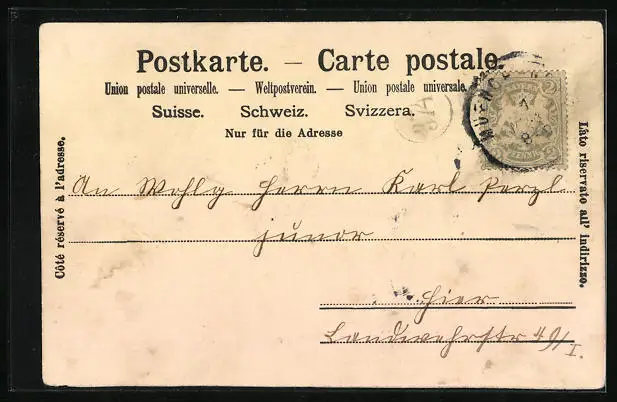 Postkarte. — Carte postale.
Union postale universelle. — Weltpostverein. — Union postale universale.
Suisse. Schweiz. Svizzera.
Nur für die Adresse
Côté réservé à l'adresse.
Lato riservato all' indirizzo.
An Wohlg Herrn Karl Perzl
junor
Hier
Landwehrstr